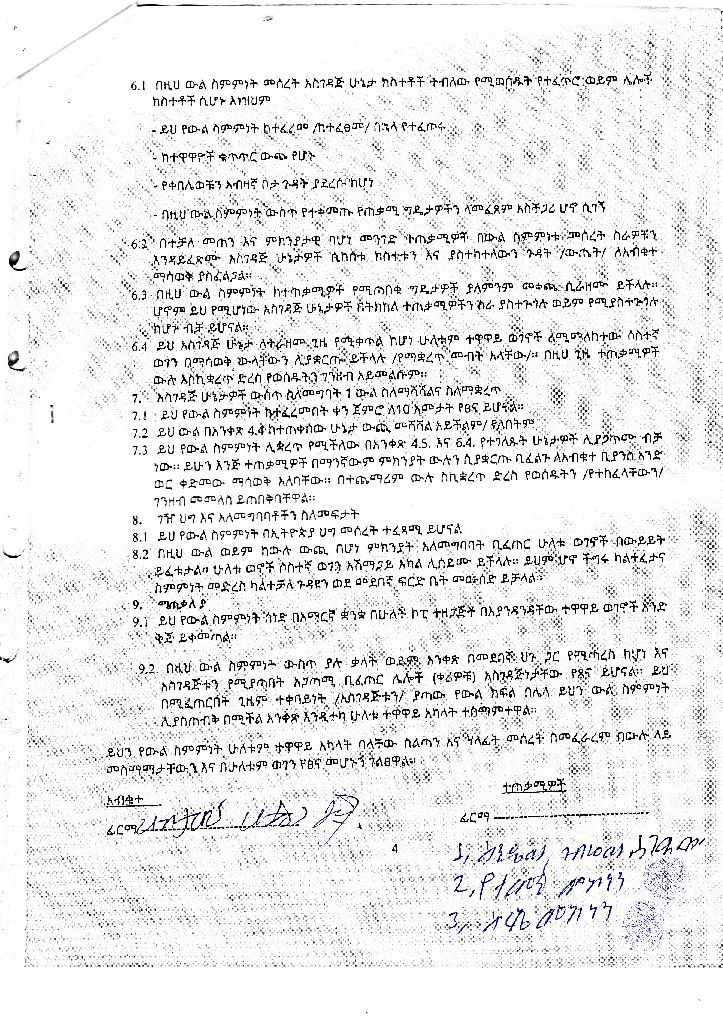 6.1 በዚህ ውል ስምምነት መሰረት አስገዳጅ ሁኔታ ክስተቶች ትብለው የሚወሰዱት የተፈጥሮ ወይም ሌሎች
ክስተቶች ሲሆኑ እነዚህም
- ይህ የውል ስምምነት ከተፈረመ /ከተፈፀመ/ በኋላ የተፈጠሩ
- ከተዋዋዮች ቁጥጥር ውጪ የሆኑ
- የቀበሌወቹን አብዛኛ ቦታ ጉዳት ያደረሱ ከሆነ
- በዚህ ውል ስምምነት ውስጥ የተቀመጡ የጠቃሚ ግዴታዎችን ለመፈጸም አስቸጋሪ ሆኖ ሲገኝ
6.2 በተቻለ መጠን እና ምክንያታዊ ባሆነ መንገድ ተጠቃሚዎች በውል ስምምነቱ መሰረት ስራዎቹን
እንዳይፈጽሙ አስገዳጅ ሁኔታዎች ሲከሰቱ ክስተቱን እና ያስከተለውን ጉዳት /ውጤት/ ለአብቁተ
ማሳወቅ ያስፈልጋል።
6.3 በዚህ ውል ስምምነት ከተጠቃሚዎች የሚጠበቁ ግዴታዎች ያለምንም መቀጫ ሲራዘሙ ይችላሉ።
ሆኖም ይህ የሚሆነው አስገዳጅ ሁኔታዎች በትክክል ተጠቃሚዎችን ስራ ያስተጓጎሉ ወይም የሚያስተጓጎሉ
ከሆኑ ብቻ ይሆናል።
6.4 ይህ አስገዳጅ ሁኔታ ለትራዘመ ጊዜ የሚቀጥል ከሆነ ሁለቱም ተዋዋይ ወገኖች ለሚመለከተው ሶስተኛ
ወገን በማሳወቅ ውላቸውን ሊያቋርጡ ይችላሉ /የማቋረጥ መብት አላቸው/። በዚህ ጊዜ ተጠቃሚዎች
ውሉ እስኪቋረጥ ድረስ የወሰዱትን ገንዘብ አይመልሱም።
7. አስገዳጅ ሁኔታዎች ውስጥ ስለመግባት 1 ውል ስለማሻሻልና ስለማቋረጥ
7.1 ይህ የውል ስምምነት ከተፈረመበት ቀን ጀምሮ ለ10 አመታት የፀና ይሆናል።
7.2 ይህ ውል በአንቀጽ 4.4 ከተጠቀሰው ሁኔታ ውጪ መሻሻል አይችልም/ የለበትም
7.3 ይህ የውል ስምምነት ሊቋረጥ የሚችለው በአንቀጽ 4.5. እና 6.4. የተገለጹት ሁኔታዎች ሊያጋጥሙ ብቻ
ነው። ይሁን እንጅ ተጠቃሚዎች በማንኛውም ምክንያት ውሉን ሲያቋርጡ ቢፈልጉ ለአብቁተ ቢያንስ አንድ
ወር ቀድመው ማሳወቅ አለባቸው። በተጨማሪም ውሉ ስኪቋረጥ ድረስ የወሰዱትን /የተከፈላቸውን/
ገንዘብ መመለስ ይጠበቅባቸዋል።
8. ገዥ ህግ እና አለመግባባቶችን ስለመፍታት
8.1 ይህ የውል ስምምነት በኢትዮጵያ ህግ መሰረት ተፈጻሚ ይሆናል
8.2 በዚህ ውል ወይም ከውሉ ውጪ በሆነ ምክንያት አለመግባባት ቢፈጠር ሁለቱ ወገኖች በውይይት
ይፈቱታል። ሁለቱ ወኖች ሶስተኛ ወገን አሸማጋይ አካል ሊሰይሙ ይችላሉ። ይህም ሆኖ ችግሩ ካልተፈታና
ስምምነት መድረስ ካልተቻለ ጉዳዩን ወደ መደበኛ ፍርድ ቤት መውሰድ ይቻላል።
9. ማጠቃለያ
9.1 ይህ የውል ስምምነት ሰነድ በአማርኛ ቋንቋ በሁለት ኮፒ ተዘጋጅቶ በእያንዳንዳቸው ተዋዋይ ወገኖች አንድ
ቅጅ ይቀመጣል።
9.2 በዚህ ውል ስምምነት ውስጥ ያሉ ቃላት ወይም አንቀጽ በመደበኛ ህጉ ጋር የሚጣረስ ከሆነ እና
አስገዳጅቱን የሚያጣበት አጋጣሚ ቢፈጠር ሌሎች (ቀሪዎቹ) አስገዳጅነታቸው የጸና ይሆናል። ይህ
በሚፈጠርበት ጊዜም ተቀባይነት /አስገዳጅቱን/ ያጣው የውል ክፍል በሌላ ይህን ውል ስምምነት
ሊያስጠብቅ በሚችል አንቀጽ እንዲተካ ሁለቱ ተዋዋይ አካላት ተስማምተዋል።
ይህን የውል ስምምነት ሁለቱም ተዋዋይ አካላት ባላቸው ስልጣን እና ሃላፊት መሰረት በመፈራረም በውሉ ላይ
መስማማታቸውን እና በሁለቱም ወገን የፀና መሆኑን ገልፀዋል።
አብቁተ
ተጠቃሚዎች
ፊርማ
ፊርማ
4
1,
2,
3,